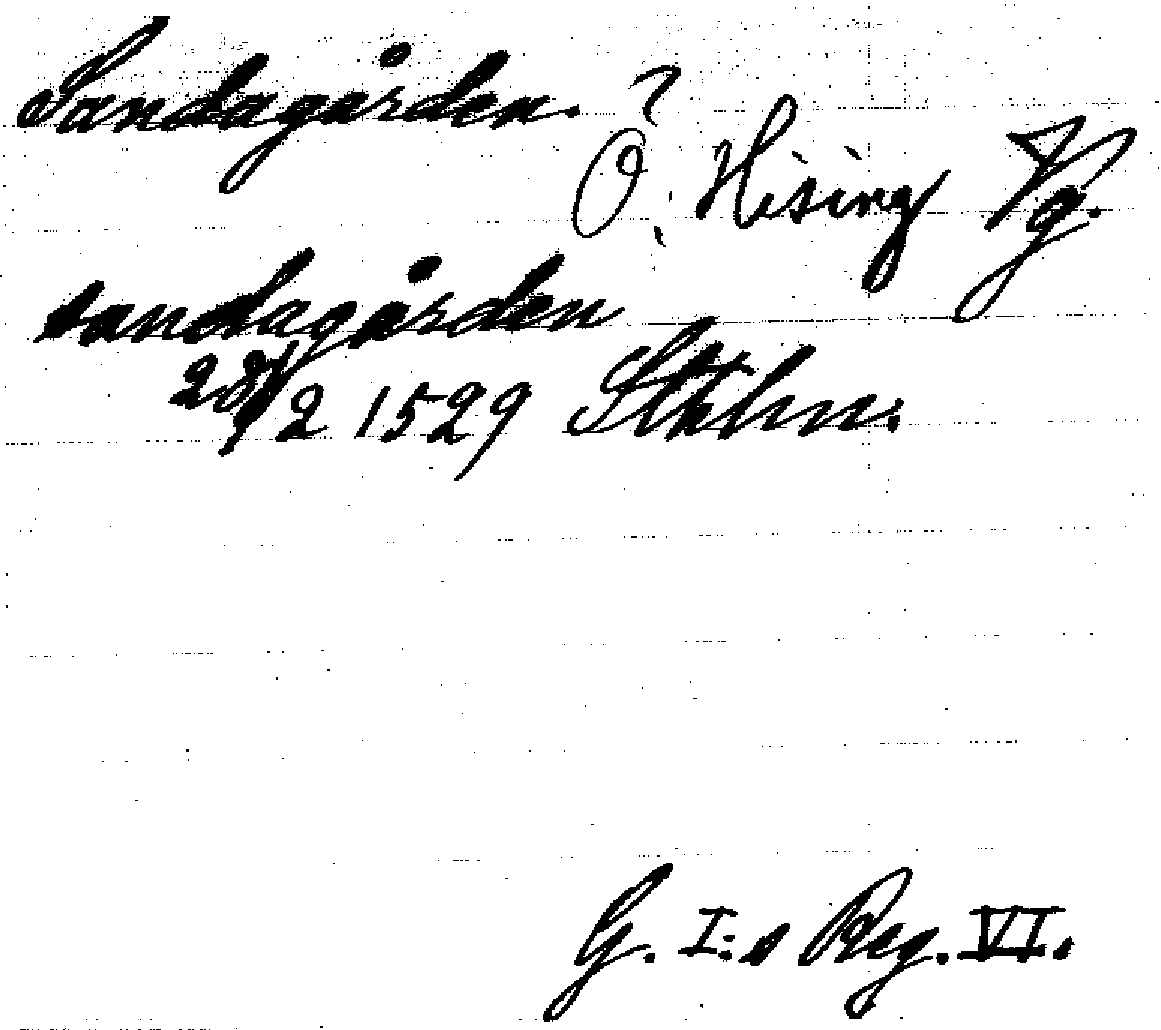 Sandagården. ?
Ö. Hising Vg.
sandagården
28/2 1529 Sthlm.
G. I:s Reg. VI.